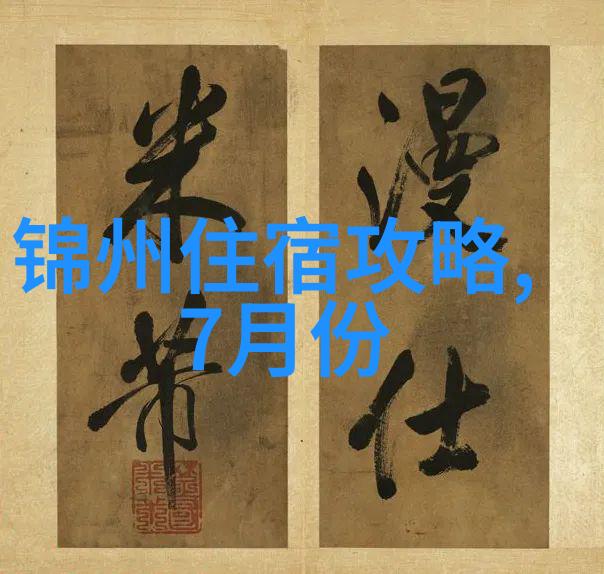 锦州住宿攻略,
7月份
漫仕
米芾